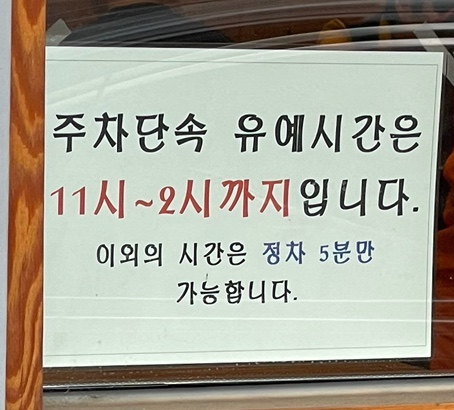 주차단속 유예시간은
11시~2시까지입니다.
이외의 시간은 정차 5분만
가능합니다.